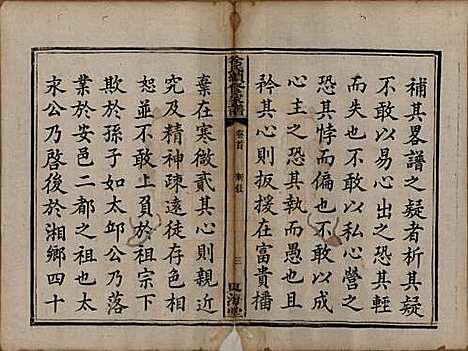 補其畧譜之疑者析其疑
不敢以易心之恐其輕
而失也不敢以私心營之
恐其悖而偏也不敢以成
心主之恐其執而愚也且
矜其心則扳援在富貴播
徐氏續修家譜
卷首
三
東海堂
棄在寒微貳其心則親近
究及精神疎遠徒存色相
恕並不敢上負於祖宗下
欺於孫子如太邱公乃落
業於安邑二都之祖也太
求公乃啓後於湘鄉四十